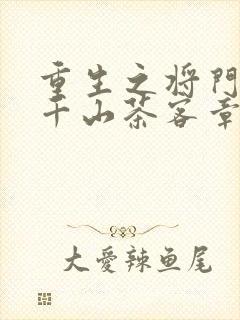 重生之将門
千山茶客章
大愛辣鱼尾